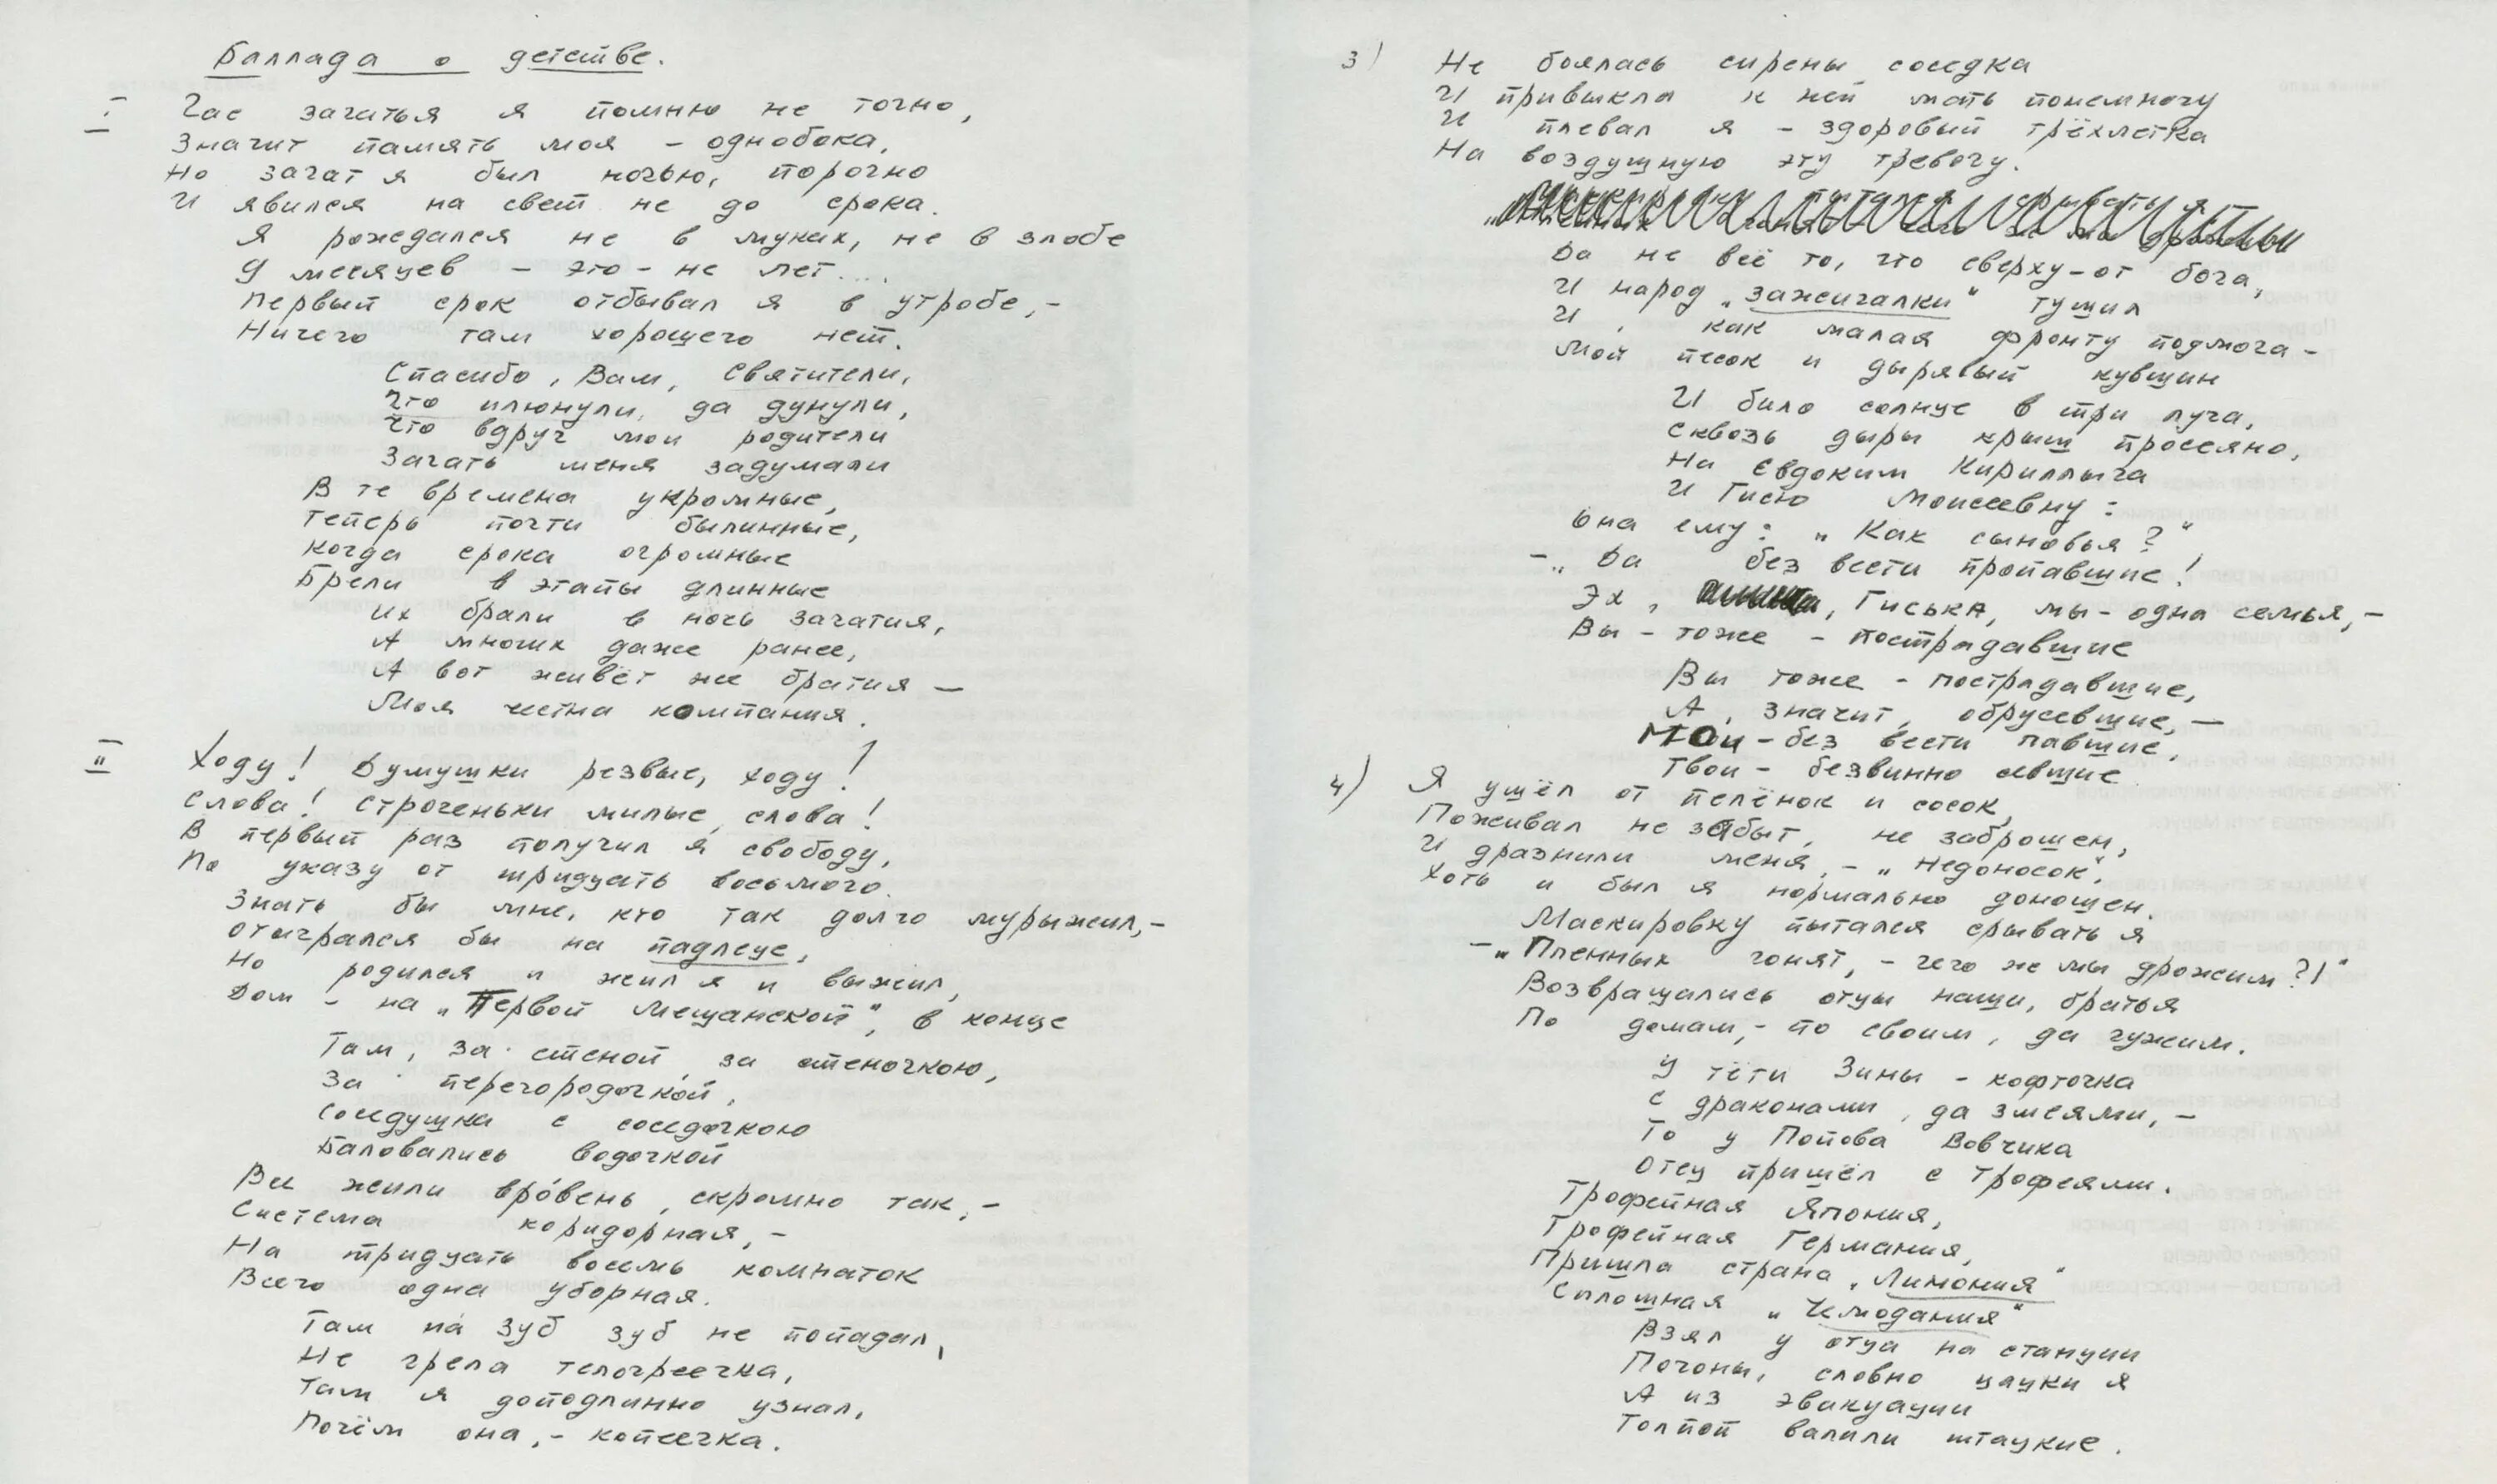 Баллада о детстве.
I Час зачатья я помню не точно,
Значит память моя - однобока,
Но зачат я был ночью, порочно
И явился на свет не до срока.
Я рождался не в муках, не в злобе
9 месяцев - это - не лет....
Первый срок отбывал я в утробе,-
Ничего там хорошего нет.
Спасибо, Вам, святители,
Что плюнули, да дунули,
Что вдруг мои родители
Зачать меня задумали
В те времена укромные,
Теперь почти былинные,
Когда срока огромные
Брели в этапы длинные
Их брали в ночь зачатия,
А многих даже ранее,
А вот живёт же братия —
Моя честна компания.
II Ходу! Думушки резвые, ходу!
Слова! Строченьки милые, слова!
В первый раз получил я свободу,
По указу от тридцать восьмого.
Знать бы мне, кто так долго мурыжил,-
Отыгрался бы на падлеце,
Но родился и жил я и выжил,
Дом - на „Первой Мещанской", в конце
Там, за стеной, за стеночкою,
За перегородочкой,
Соседушка с соседочкою
Баловались водочкой
Все жили вро́вень, скромно так,-
Система коридорная,-
На тридцать восемь комнаток
Всего одна уборная.
Там на́ зуб зуб не попадал,
Не грела телогреечка,
Там я доподлинно узнал,
Почём она,- копеечка.
3) Не боялась сирены соседка
И привыкла к ней мать понемногу
И плевал я - здоровый трёхлетка
На воздушную эту тревогу.
Да не всё то, что сверху-от бога,
И народ „зажигалки" тушил
И, как малая фронту подмога -
Мой песок и дырявый кувшин
И било солнце в три луча,
Сквозь дыры крыш просеяно,
На Евдоким Кириллыча
И Гисю Моисеевну:
Она ему: „Как сыновья?"
-„Да без вести пропавшие!
Эх, Гиська, мы - одна семья,-
Вы - тоже - пострадавшие
Вы тоже - пострадавшие,
А, значит, обрусевшие,—
Мои - без вести павшие,
Твои - безвинно севшие
4) Я ушёл от пелёнок и сосок,
Поживал не забыт, не заброшен,
И дразнили меня,-„Недоносок",
Хоть и был я нормально доношен.
Маскировку пытался срывать я
-„Пленных гонят,- чего же мы дрожим?!"
Возвращались отцы наши, братья
По домам,- по своим, да чужим.
У тёти Зины - кофточка
С драконами, да змеями,-
То у Попова Вовчика
Отец пришёл с трофеями.
Трофейная Япония,
Трофейная Германия,
Пришла страна „Лимония"
Сплошная „Чемодания"
Взял у отца на станции
Погоны, словно цацки я
А из эвакуации
Толпой валили штацкие.